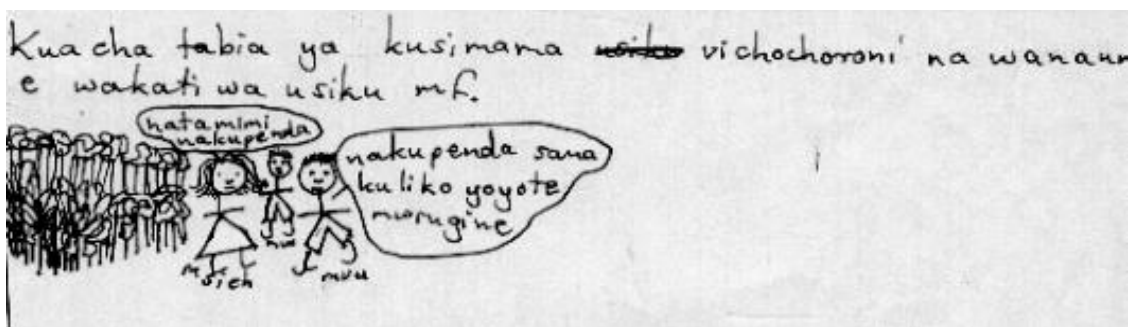 Kuacha tabia ya kusimama usiku vichochoroni na wanaum
e wakati wa usiku mf.
hatamimi
nakupenda
nakupenda sana
kuliko yoyote
mwingine
msich
mvu